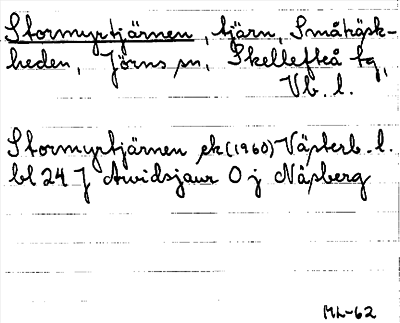 Stormyrtjärnen, tjärn, Småträsk-
heden, Jörns sn, Skellefteå tg,
Vb. l.
Stormyrtjärnen ek (1960) Västerb. l.
bl 24 J Arvidsjaur O j Näsberg
ML-62